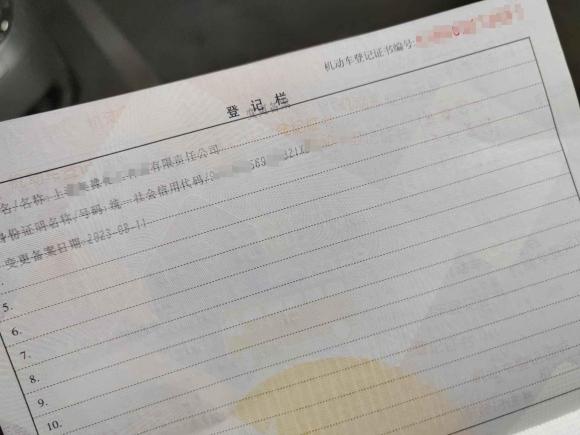 机动车登记证书编号:
登记栏
名/名称:上 有限责任公司
身份证明名称/号码:统一社会信用代码/9 569 321X
变更备案日期:2023-08-11
5.
6.
7.
8.
9.
10.